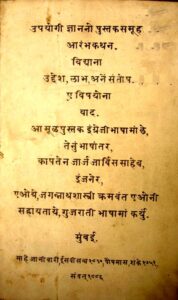 उपयोगी ज्ञाननो पुस्तकसमूह
आरंभकथन.
विद्याना
उद्देश, लाभ, अने संतोष.
ए विषयोना
याद.
आ मूळपुस्तक इंग्रेजीभाषामां छे,
तेनुं भाषांतर,
कापतेन जार्ज जार्विससाहेब,
इंजनेर,
एओये, जगन्नाथशास्त्री क्रमवंत एओनी
सहायताये, गुजराती भाषामां कर्युं.
मुंबई.
माहे जानेवारी